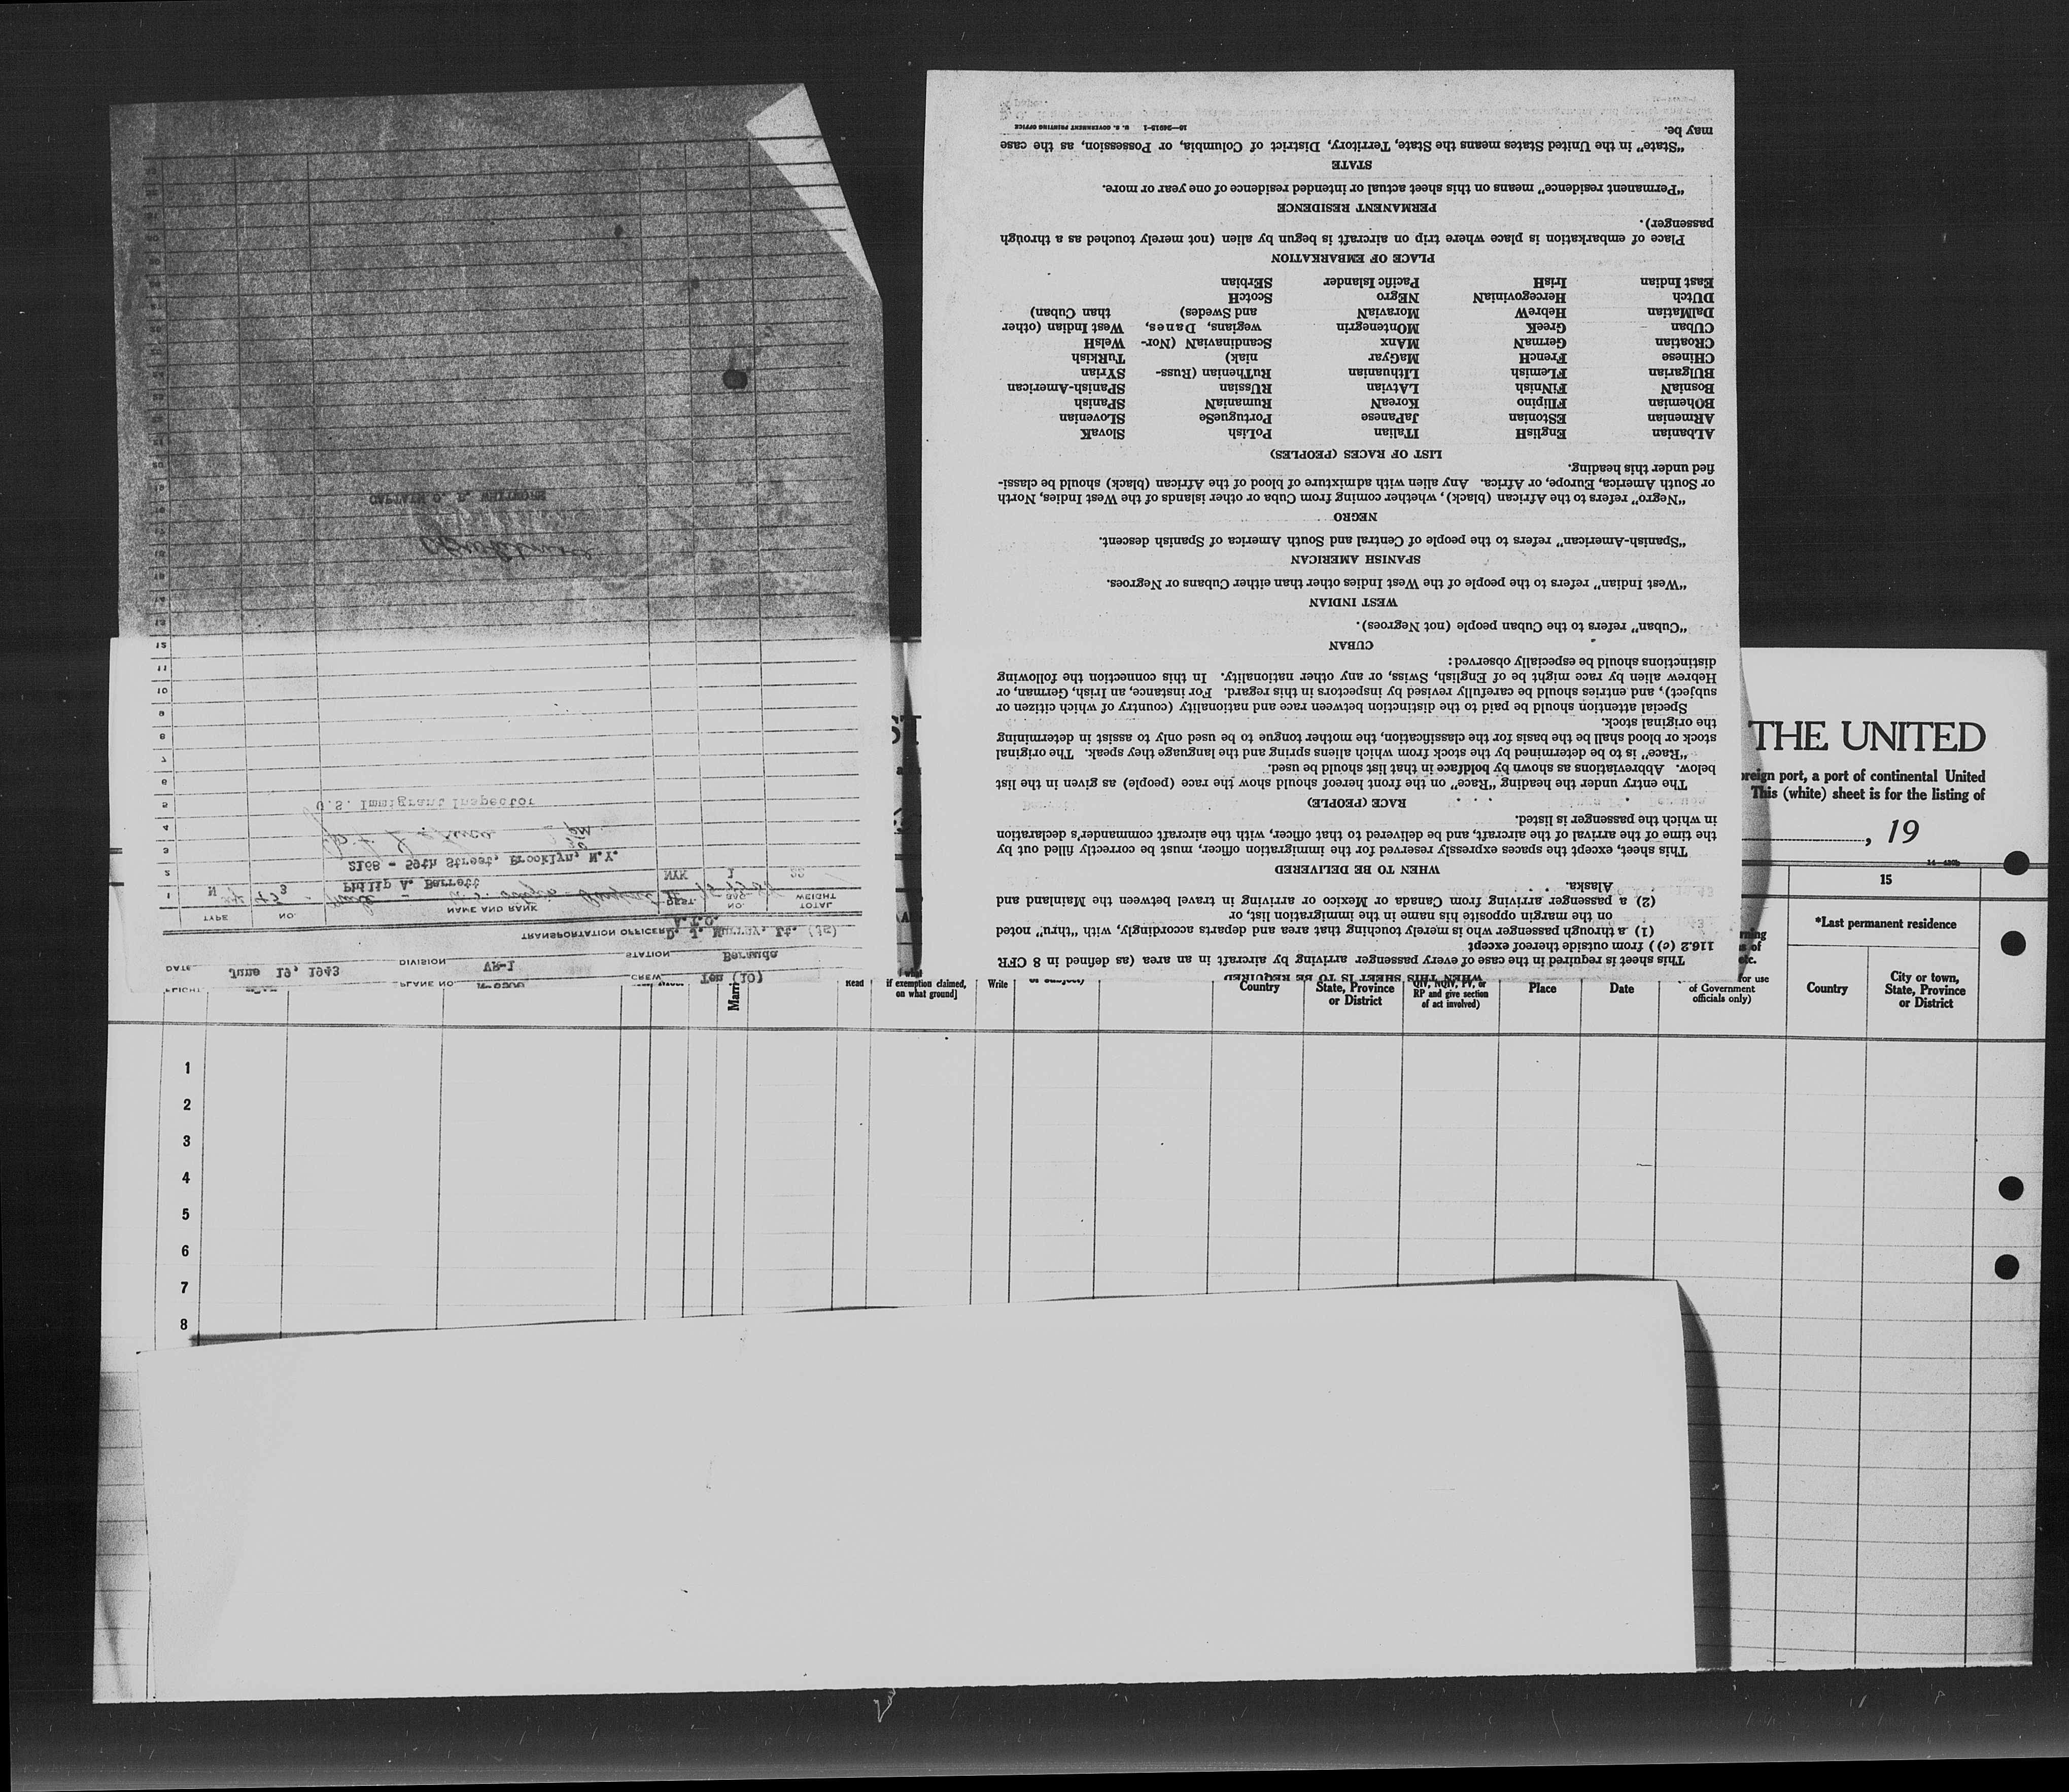 FLIGHT
PLANE NO.
CREW Ten (10)
DATE June 19, 1943 DIVISION VR-1 STATION Bermuda
TRANSPORTATION OFFICER D. J. Murray, Lt. (jg)
A.T.O.
TYPE NO. NAME AND RANK DEST. NO. BAG. TOTAL WEIGHT
1 N 3 Philip A. Barrett NYK 1 22
2 2168 - 59th Street, Brooklyn, N.Y.
3
4
5 U.S. Immigrant Inspector
6
7
8
9
10
11
12
13
14
CAPTAIN O. E. WHITMORE
WHEN THIS SHEET IS TO BE REQUIRED
This sheet is required in the case of every passenger arriving by aircraft in an area (as defined in 8 CFR
116.2 (c)) from outside thereof except
(1) a through passenger who is merely touching that area and departs accordingly, with "thru" noted
on the margin opposite his name in the immigration list, or
(2) a passenger arriving from Canada or Mexico or arriving in travel between the Mainland and
Alaska.
WHEN TO BE DELIVERED
This sheet, except the spaces expressly reserved for the immigration officer, must be correctly filled out by
the time of the arrival of the aircraft, and be delivered to that officer, with the aircraft commander's declaration
in which the passenger is listed.
RACE (PEOPLE)
The entry under the heading "Race" on the front hereof should show the race (people) as given in the list
below. Abbreviations as shown by boldface in that list should be used.
"Race" is to be determined by the stock from which aliens spring and the language they speak. The original
stock or blood shall be the basis for the classification, the mother tongue to be used only to assist in determining
the original stock.
Special attention should be paid to the distinction between race and nationality (country of which citizen or
subject), and entries should be carefully revised by inspectors in this regard. For instance, an Irish, German, or
Hebrew alien by race might be of English, Swiss, or any other nationality. In this connection the following
distinctions should be especially observed:
CUBAN
"Cuban" refers to the Cuban people (not Negroes).
WEST INDIAN
"West Indian" refers to the people of the West Indies other than either Cubans or Negroes.
SPANISH AMERICAN
"Spanish-American" refers to the people of Central and South America of Spanish descent.
NEGRO
"Negro" refers to the African (black), whether coming from Cuba or other islands of the West Indies, North
or South America, Europe, or Africa. Any alien with admixture of blood of the African (black) should be classi-
fied under this heading.
LIST OF RACES (PEOPLES)
ALbanian EnglisH ITalian PoLish SlovaK
ARmenian EStonian JaPanese PortugueSe SLovenian
BOhemian FIlipino KoreaN RumaniaN SPanish
BosniaN FiNnish LAtvian RUssian SPanish-American
BUlgarian FLemish LIthuanian RuThenian (Russ- SYrian
CHinese FrencH MaGyar niak) TuRkish
CRoatian GermaN MAnx ScandinaviaN (Nor- WelsH
CUban GreeK MOntenegrin wegians, Danes, West Indian (other
DalMatian HebreW MoraviaN and Swedes) than Cuban)
DUtch HercegoviniaN NEgro ScotcH
East Indian IrisH Pacific Islander SErbian
PLACE OF EMBARKATION
Place of embarkation is place where trip on aircraft is begun by alien (not merely touched as a through
passenger).
PERMANENT RESIDENCE
"Permanent residence" means on this sheet actual or intended residence of one year or more.
STATE
"State" in the United States means the State, Territory, District of Columbia, or Possession, as the case
may be.
16—24915-1 U. S. GOVERNMENT PRINTING OFFICE
THE UNITED
reign port, a port of continental United
This (white) sheet is for the listing of
, 19
15
*Last permanent residence
Read
if exemption claimed,
on what ground]
Write
Country
State, Province
or District
QIV, NQIV, PV, or
RP and give section
of act involved)
Place
Date
for use
of Government
officials only)
Country
City or town,
State, Province
or District
1
2
3
4
5
6
7
8